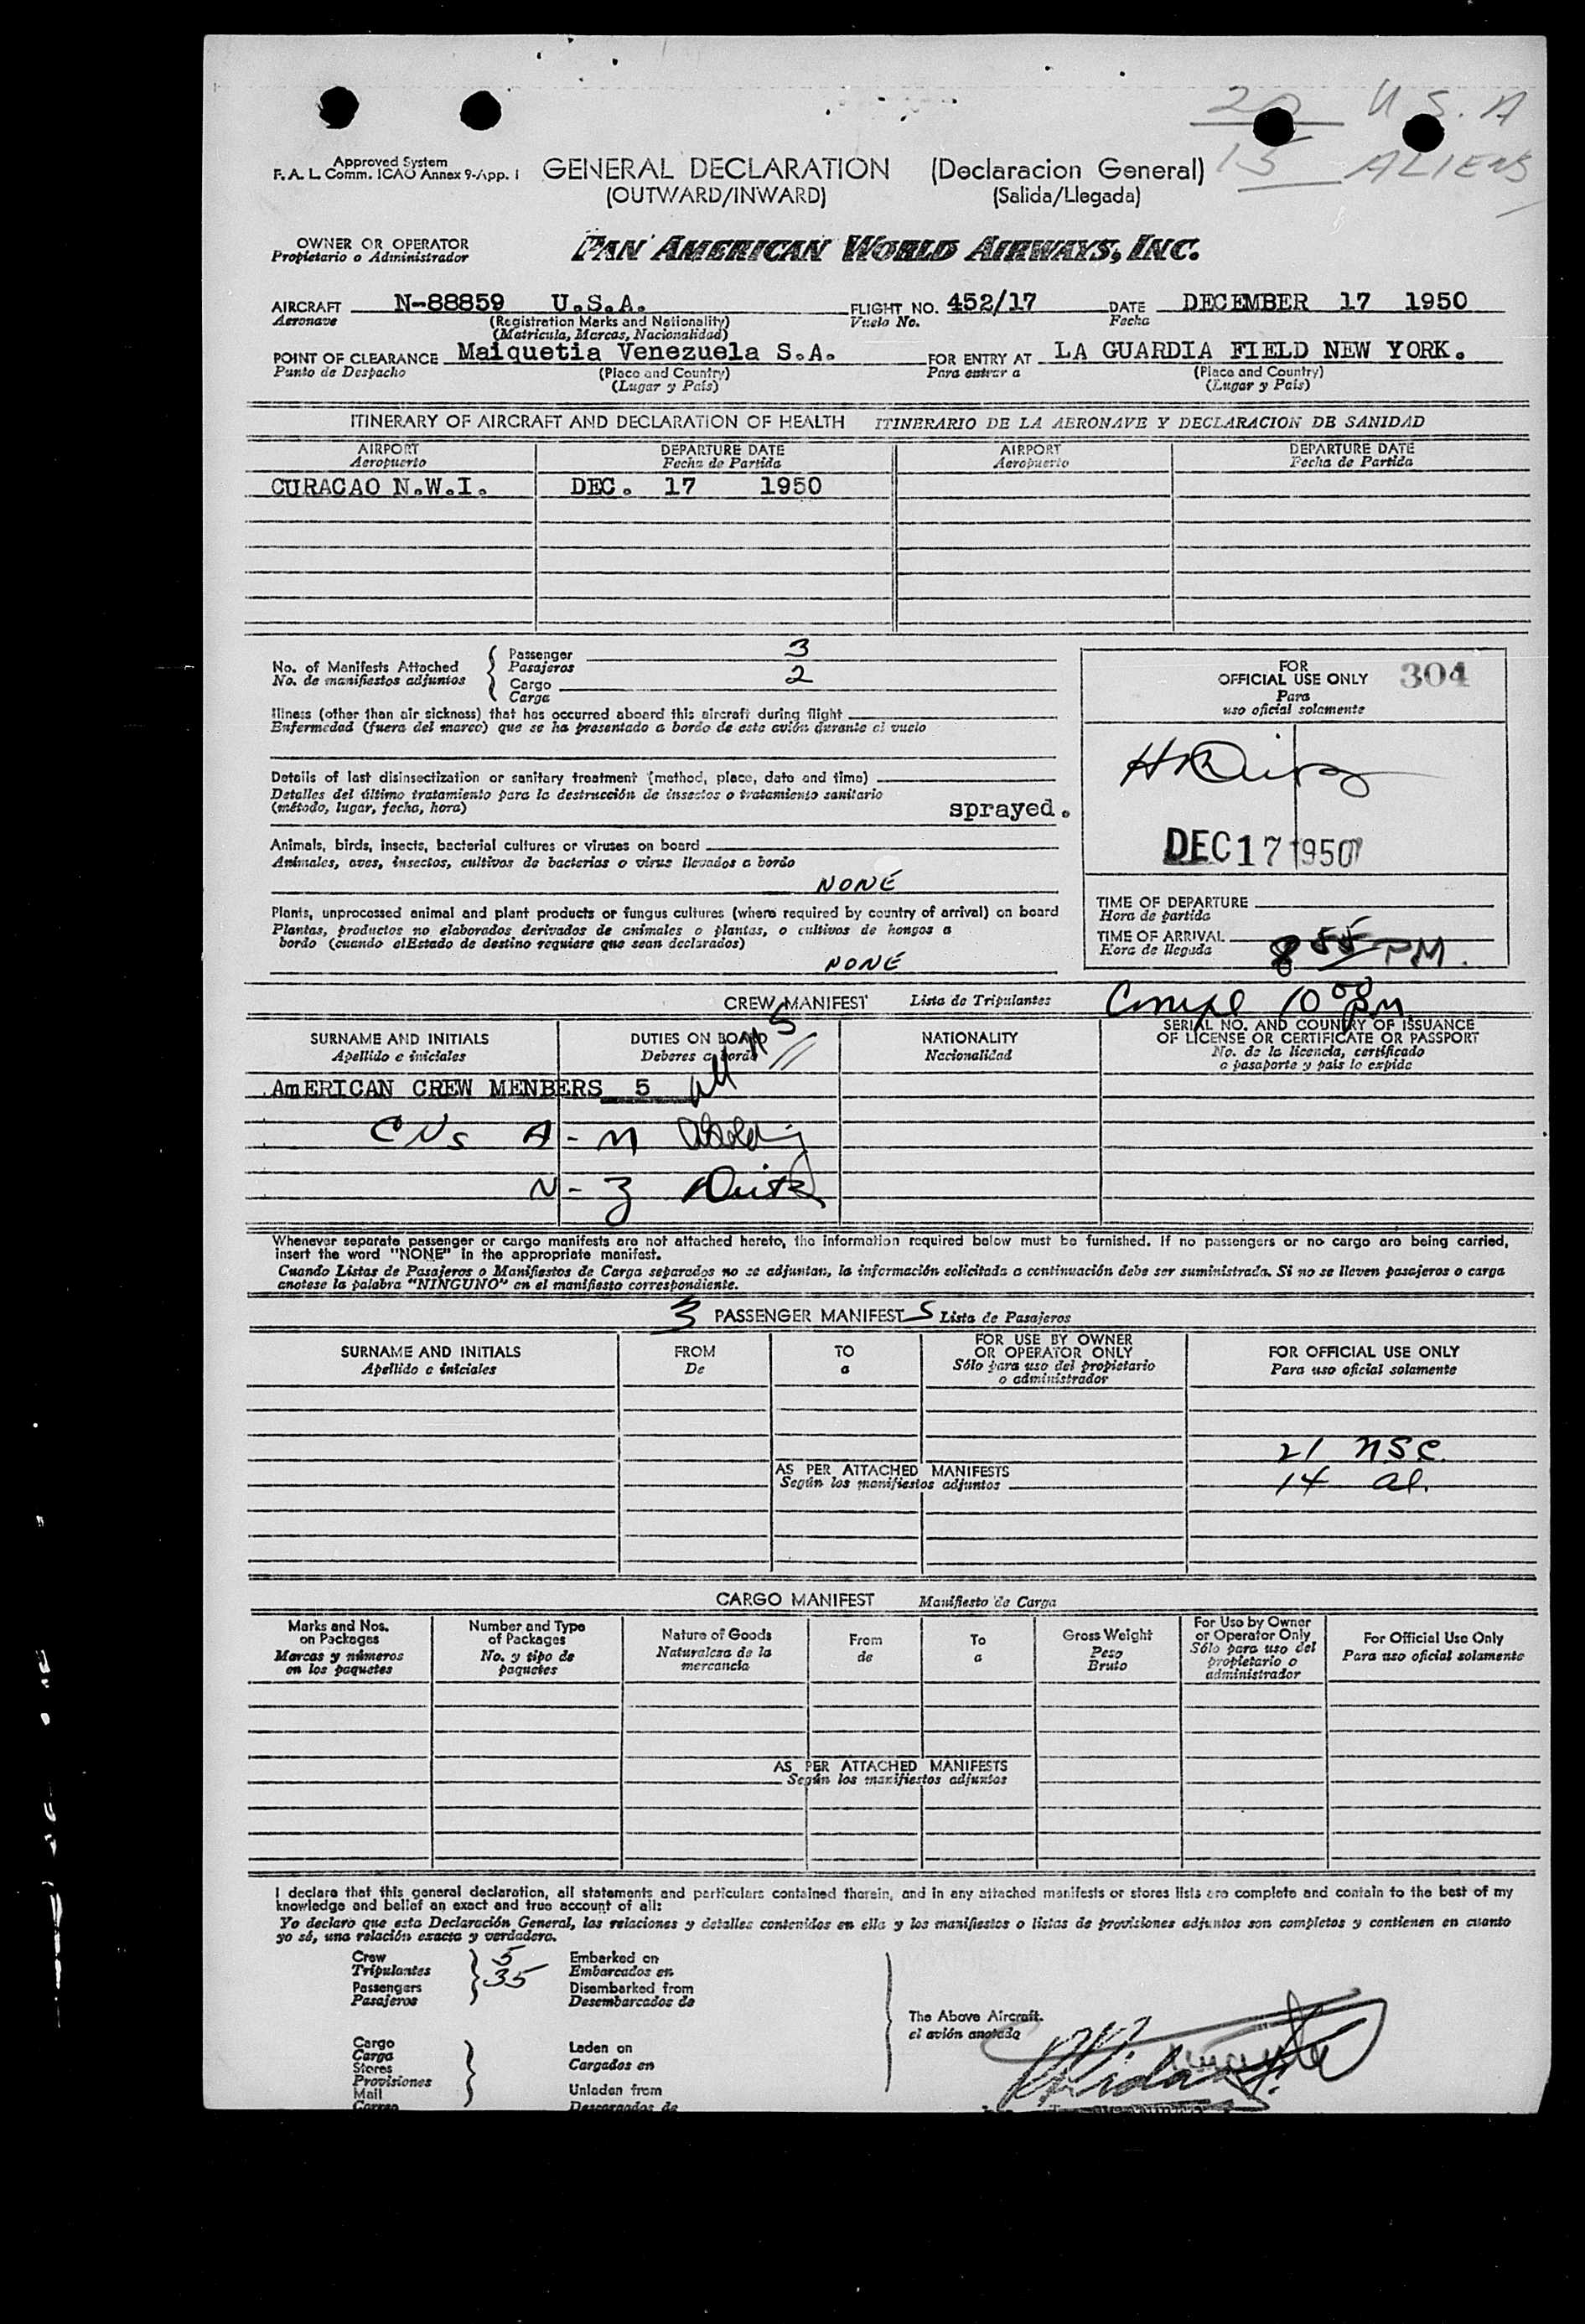 20 U.S.A
15 ALIENS
Approved System
F. A. L. Comm. ICAO Annex 9-App. 1
GENERAL DECLARATION (Declaracion General)
(OUTWARD/INWARD) (Salida/Llegada)
OWNER OR OPERATOR
Propietario o Administrador
PAN AMERICAN WORLD AIRWAYS, INC.
AIRCRAFT N-88859 U.S.A. FLIGHT NO. 452/17 DATE DECEMBER 17 1950
Aeronave (Registration Marks and Nationality) Vuelo No. Fecha
(Matricula, Marcas, Nacionalidad)
POINT OF CLEARANCE Maiquetia Venezuela S.A. FOR ENTRY AT LA GUARDIA FIELD NEW YORK.
Punto de Despacho (Place and Country) Para entrar a (Place and Country)
(Lugar y País) (Lugar y País)
ITINERARY OF AIRCRAFT AND DECLARATION OF HEALTH ITINERARIO DE LA AERONAVE Y DECLARACION DE SANIDAD
AIRPORT DEPARTURE DATE AIRPORT DEPARTURE DATE
Aeropuerto Fecha de Partida Aeropuerto Fecha de Partida
CURACAO N.W.I. DEC. 17 1950
No. of Manifests Attached
No. de manifiestos adjuntos
Passenger 3
Pasajeros
Cargo 2
Carga
Illness (other than air sickness) that has occurred aboard this aircraft during flight
Enfermedad (fuera del mareo) que se ha presentado a bordo de este avión durante el vuelo
Details of last disinsectization or sanitary treatment (method, place, date and time)
Detalles del último tratamiento para la destrucción de insectos o tratamiento sanitario
(método, lugar, fecha, hora) sprayed.
Animals, birds, insects, bacterial cultures or viruses on board
Animales, aves, insectos, cultivos de bacterias o virus llevados a bordo
NONE
Plants, unprocessed animal and plant products or fungus cultures (where required by country of arrival) on board
Plantas, productos no elaborados derivados de animales o plantas, o cultivos de hongos a
bordo (cuando elEstado de destino requiere que sean declarados)
NONE
FOR
OFFICIAL USE ONLY 304
Para
uso oficial solamente
DEC 17 1950
TIME OF DEPARTURE
Hora de partida
TIME OF ARRIVAL 8 55 PM.
Hora de llegada
CREW MANIFEST Lista de Tripulantes Compl 10 00 Pm
SURNAME AND INITIALS DUTIES ON BOARD NATIONALITY SERIAL NO. AND COUNTRY OF ISSUANCE
OF LICENSE OR CERTIFICATE OR PASSPORT
Apellido e iniciales Deberes a bordo Nacionalidad No. de la licencia, certificado
o pasaporte y país lo expide
AmERICAN CREW MENBERS 5
A - M
N - Z
Whenever separate passenger or cargo manifests are not attached hereto, the information required below must be furnished. If no passengers or no cargo are being carried,
insert the word "NONE" in the appropriate manifest.
Cuando Listas de Pasajeros o Manifiestos de Carga separados no se adjuntan, la información solicitada a continuación debe ser suministrada. Si no se lleven pasajeros o carga
anotese la palabra "NINGUNO" en el manifiesto correspondiente.
3 PASSENGER MANIFEST S Lista de Pasajeros
SURNAME AND INITIALS FROM TO FOR USE BY OWNER
OR OPERATOR ONLY FOR OFFICIAL USE ONLY
Apellido e iniciales De a Sólo para uso del propietario
o administrador Para uso oficial solamente
21 USC
AS PER ATTACHED MANIFESTS
Según los manifiestos adjuntos
14 al.
CARGO MANIFEST Manifiesto de Carga
Marks and Nos.
on Packages
Marcas y números
en los paquetes
Number and Type
of Packages
No. y tipo de
paquetes
Nature of Goods
Naturaleza de la
mercancía
From
de
To
a
Gross Weight
Peso
Bruto
For Use by Owner
or Operator Only
Sólo para uso del
propietario o
administrador
For Official Use Only
Para uso oficial solamente
AS PER ATTACHED MANIFESTS
Según los manifiestos adjuntos
I declare that this general declaration, all statements and particulars contained therein, and in any attached manifests or stores lists are complete and contain to the best of my
knowledge and belief an exact and true account of all:
Yo declaro que esta Declaración General, las relaciones y detalles contenidos en ella y los manifiestos o listas de provisiones adjuntos son completos y contienen en cuanto
yo sé, una relación exacta y verdadera.
Crew 5
Tripulantes 35
Passengers
Pasajeros
Embarked on
Embarcados en
Disembarked from
Desembarcados de
The Above Aircraft.
el avión anotado
Cargo
Carga
Stores
Provisiones
Mail
Correo
Laden on
Cargados en
Unladen from
Descargados de